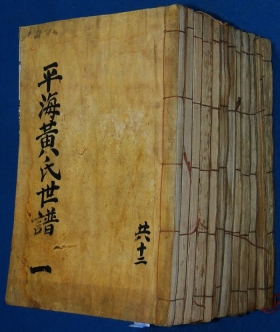 平海黃氏世譜
一
共十二